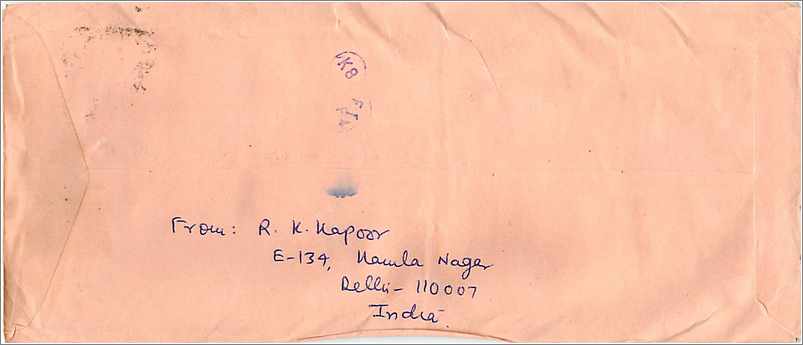 K8
From: R. K. Kapoor
E-134, Kamla Nagar
Delhi - 110007
India.